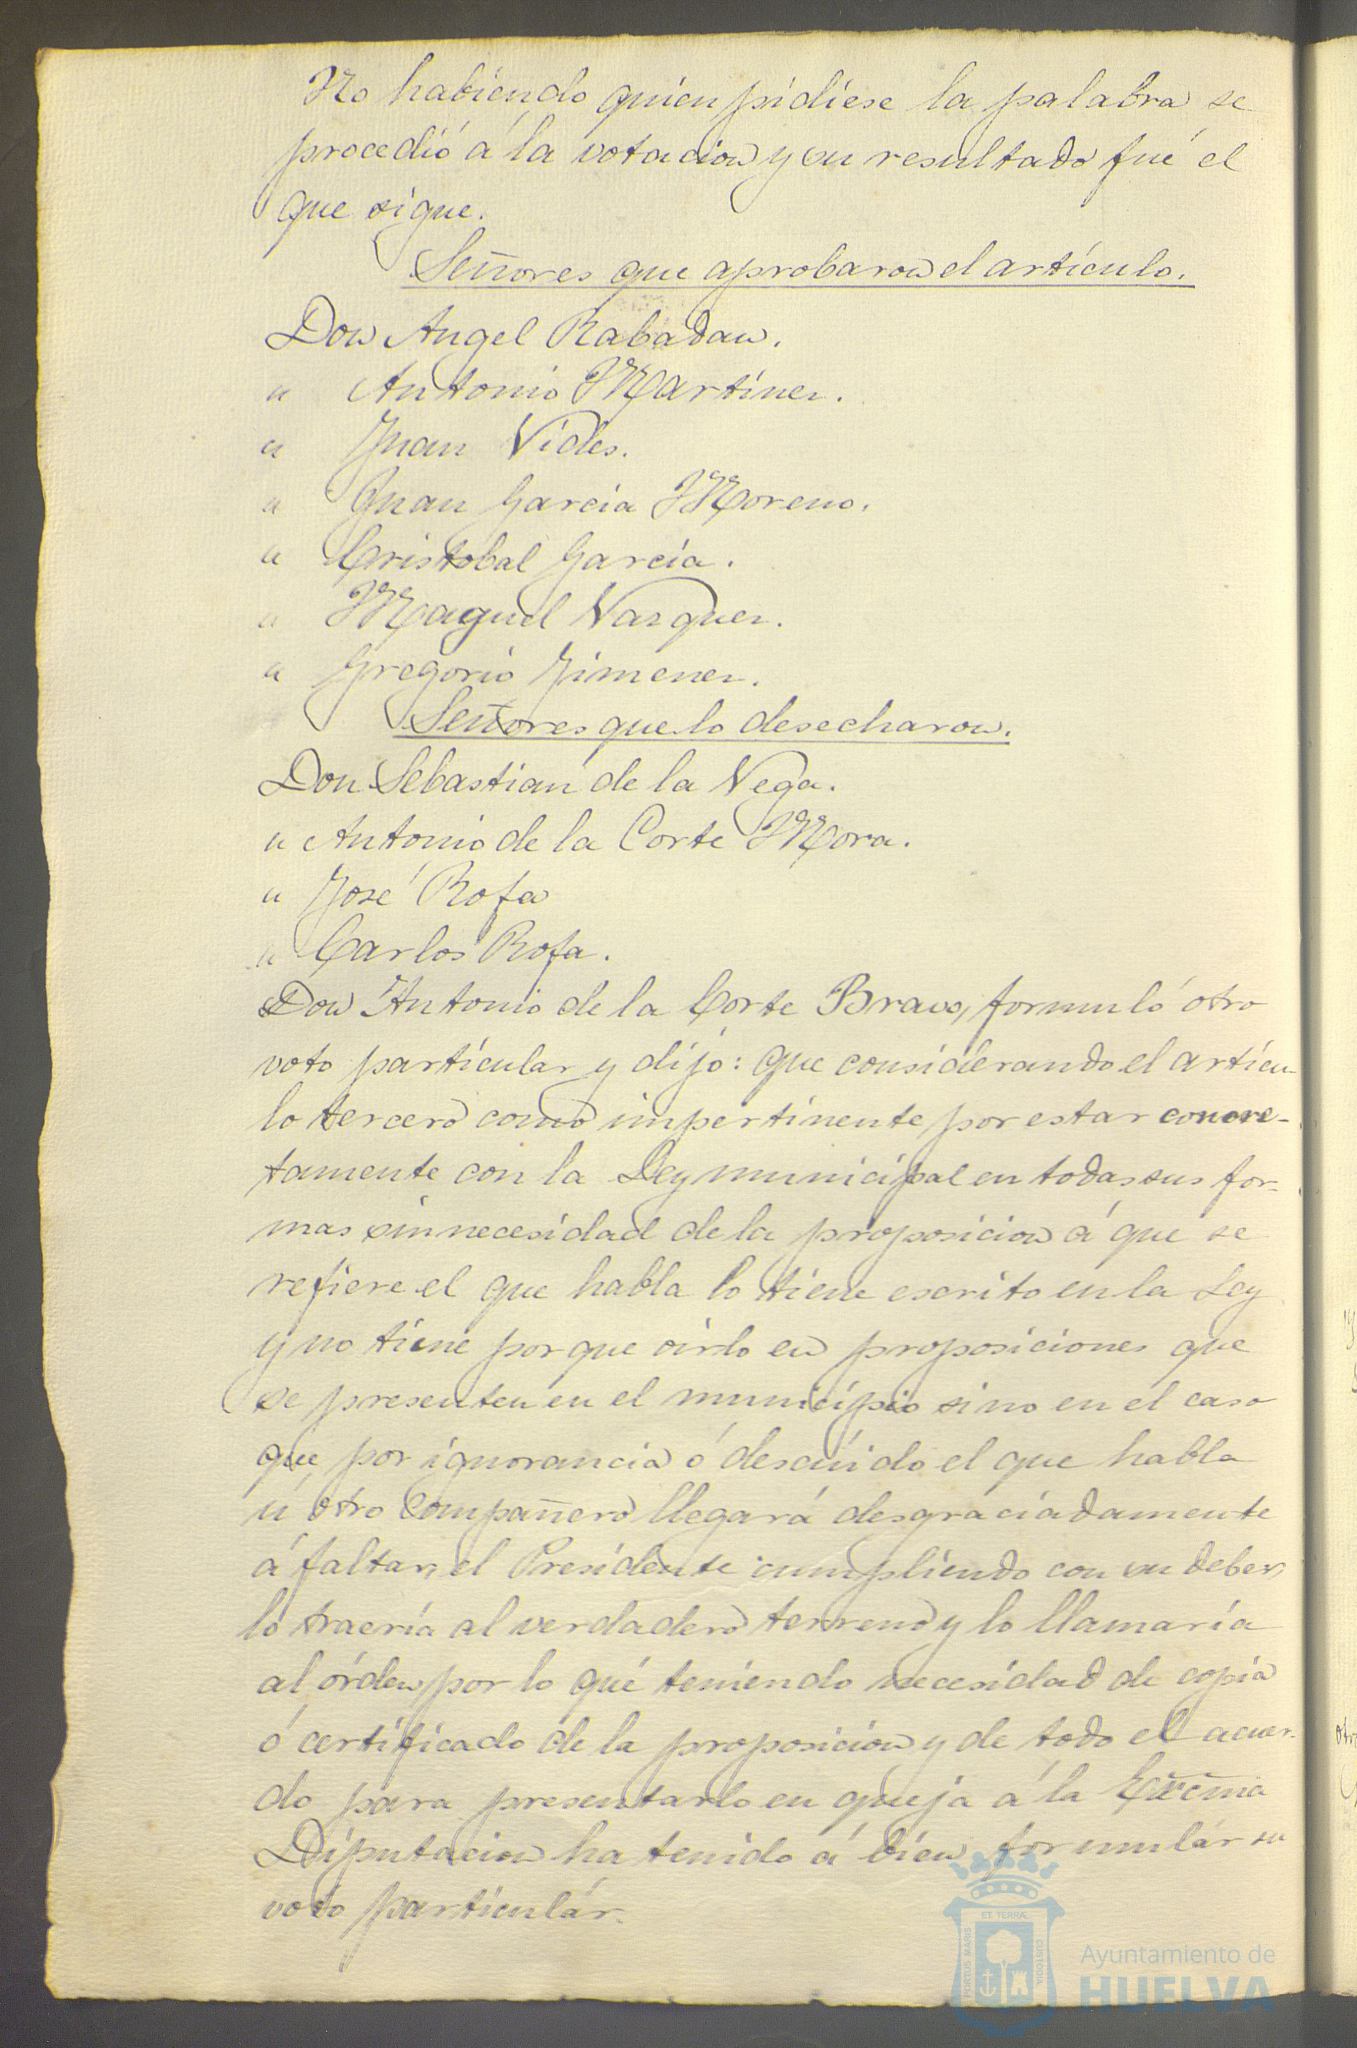 No habiendo quien pidiese la palabra se
procedió á la votacion y su resultado fué el
que sigue.
Señores que aprobaron el artículo.
Don Angel Rabadan.
" Antonio Martinez.
" Juan Vides.
" Juan Garcia Moreno.
" Cristobal Garcia.
" Maguel Vazquez.
" Gregorio Jimenez.
Señores que lo desecharon.
Don Sebastian de la Vega.
" Antonio de la Corte Mora.
" José Rofa
" Carlos Rofa.
Don Antonio de la Corte Bravo, formuló otro
voto particular y dijo: que considerando el artícu-
lo tercero como impertinente por estar concre-
tamente con la Ley municipal en todas sus for-
mas sin necesidad de la proposicion á que se
refiere el que habla lo tiene escrito en la Ley
y no tiene por que oirlo en proposiciones que
se presenten en el municipio sino en el caso
que por ignorancia ó descuido el que habla
ú otro Compañero llegará desgraciadamente
á faltar, el Presidente cumpliendo con su deber,
lo traería al verdadero terreno y lo llamaría
al órden, por lo qué teniendo necesidad de copia
ó certificado de la proposicion y de todo el acuer-
do para presentarlo en queja á la Excma
Diputacion ha tenido á bien formulár su
voto particulár.
PORTUS MARIS
ET TERRÆ
CUSTODIA
Ayuntamiento de
HUELVA